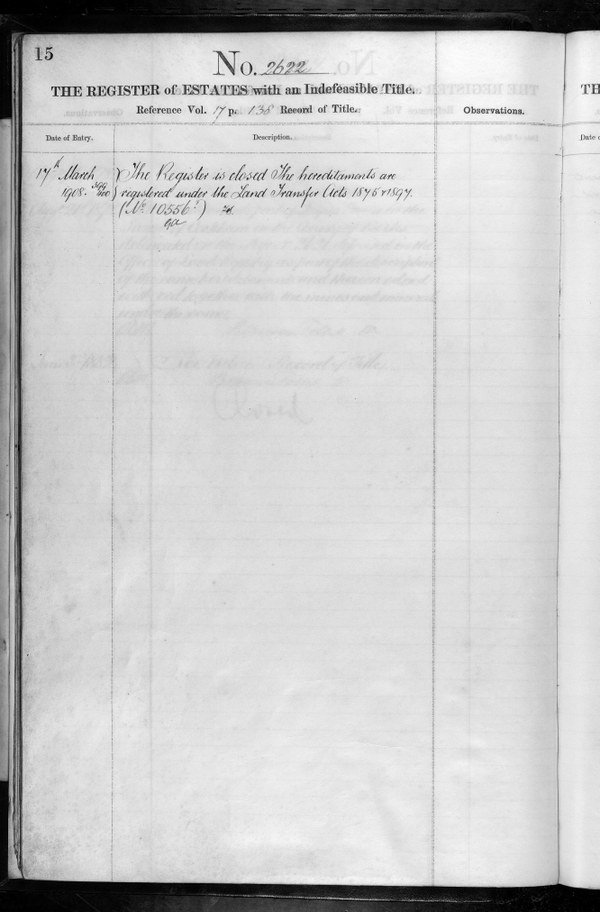 15
No. 2622
THE REGISTER of ESTATES with an Indefeasible Title.
Reference Vol. 17 p. 138 Record of Title.
Observations.
Date of Entry.
Description.
17th March
1908.
The Register is closed The hereditaments are
registered under the Land Transfer Acts 1875 & 1897.
(No 105561)
TH
Date o